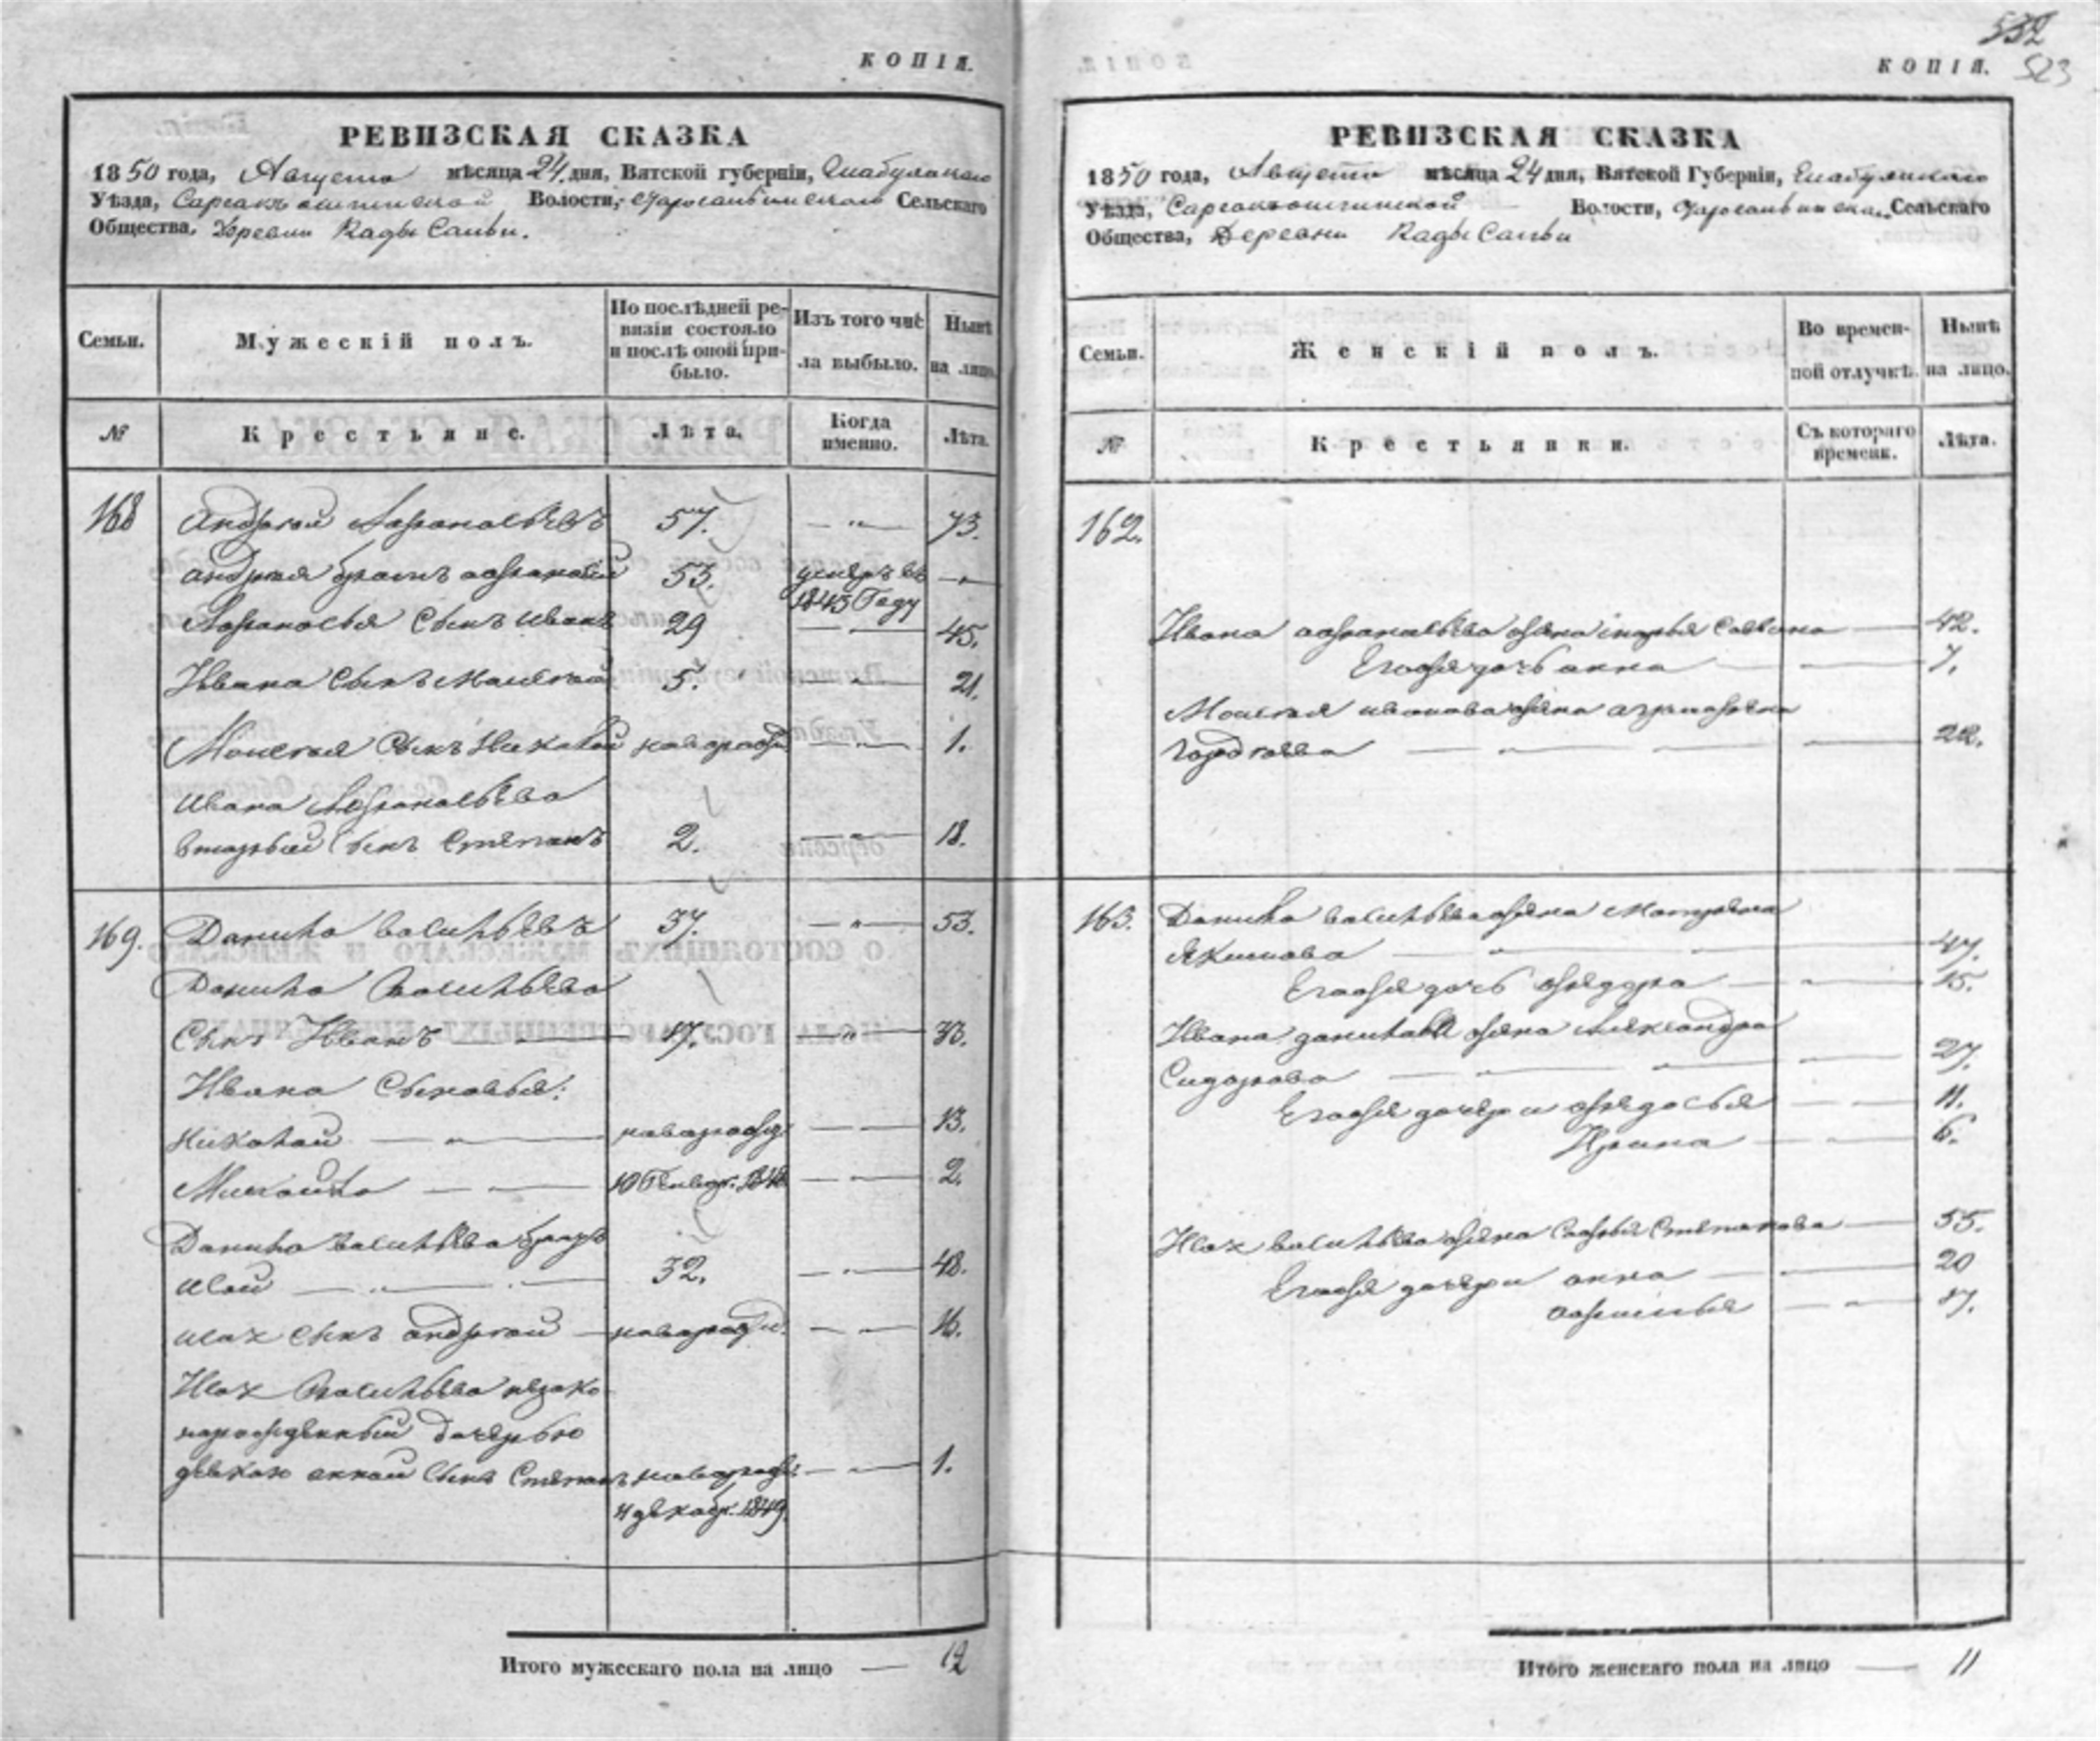 КОПІЯ.
РЕВИЗСКАЯ СКАЗКА
1850 года, Августа мѣсяца 24 дня, Вятской губерніи, Елабужскаго
Уѣзда, Волости, Сельскаго
Общества, Деревни Кады Сальи.
Семьи. Мужескій полъ. По послѣдней ревизіи состояло и послѣ оной прибыло. Изъ того числа выбыло. Нынѣ на лицо.
№ Крестьяне. Лѣта. Когда именно. Лѣта.
168 Андрей Афанасьевъ 57. — „ — 73.
Андрея братъ Афанасій 53. умеръ въ 1843 Году — „ —
Афанасья сынъ Иванъ 29 — — 45.
Ивана сынъ Моисей 5. — „ — 21.
Моисея сынъ Николай новорожд. — „ — 1.
Ивана Афанасьева
второй сынъ Степанъ 2. — „ — 18.
169. Данило Васильевъ 37. — „ — 53.
Данила Васильева
сынъ Иванъ — „ — 17. — „ — 33.
Ивана Сыновья:
Николай — „ — новорожд. — „ — 13.
Михайло — „ — 10 Генвар. 1848 — „ — 2.
Данила Васильева братъ
Исай — „ — „ — 32. — „ — 48.
Исая сынъ Андрей — новорожд. — „ — 16.
Исая Васильева незако-
норожденный дочерью
дѣвкою Анной сынъ Степанъ новорожд. — „ — 1.
4 декабр. 1849.
Итого мужескаго пола на лицо — 12
532
КОПІЯ. 523
РЕВИЗСКАЯ СКАЗКА
1850 года, Августа мѣсяца 24 дня, Вятской Губерніи, Елабужскаго
Уѣзда, Волости, Сельскаго
Общества, Деревни Кады Сальи
Семьи. Женскій полъ. Во временной отлучкѣ. Нынѣ на лицо.
№ Крестьянки. Съ котораго времени. Лѣта.
162.
Ивана Афанасьева жена Марья Савина — 42.
Егожа дочь Анна — — 7.
Моисея Иванова жена Аграфена
— „ — — 22.
163. Данила Васильева жена Матрена
Якимова — „ — „ — 47.
Егожа дочь Федора — „ — 15.
Ивана Данилова жена Александра
Сидорова — „ — „ — 27.
Егожа дочери Федосья — „ — 11.
Ирина — „ — 6.
Исая Васильева жена Софья Степанова — 55.
Егожа дочери Анна — „ — 20
Афимья — „ — 17.
Итого женскаго пола на лицо — 11